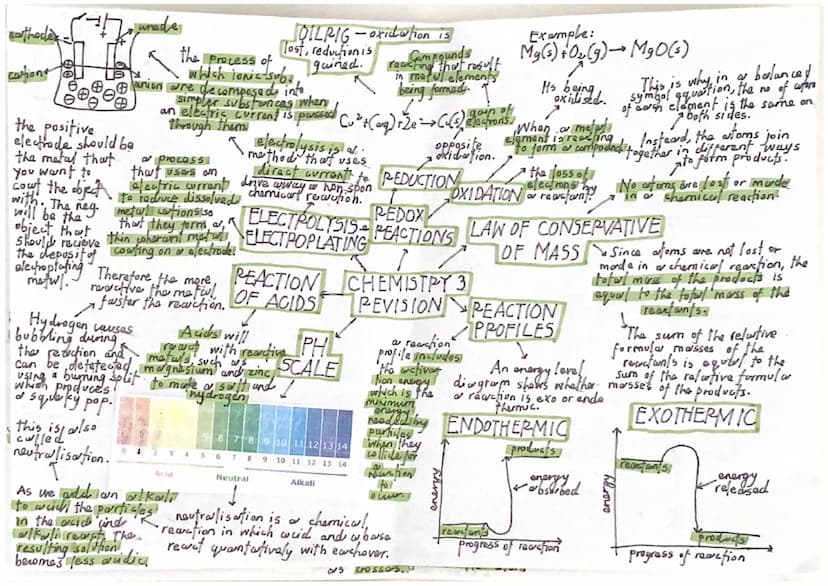 cathode
anode
cation
anion
the process of
which ionic sub.
are decomposed into
simpler substances when
an electric current is passed
through them
OILRIG – oxidation is
lost, reduction is
gained.
Compounds
reacting that result
in metal elements
being formed.
Cu²+(aq)+2e→Cu(s)
gain of
electrons.
opposite
oxidation.
Example:
Mg(s)+O₂(g)→MgO(s)
Its being
oxidised.
When a metal
element is reacting
to form a compound.
the loss of
electrons by
a reactant.
This is why in a balanced
symbol equation, the no of atoms
of each element is the same on
both sides.
Instead, the atoms join
together in different ways
to form products.
No atoms are lost or made
in a chemical reaction.
the positive
electrode should be
the metal that
you want to
coat the object
with. The neg
will be the
object that
should recieve
the deposit of
electroplating
metal.
a process
that uses an
electric current
to reduce dissolved
metal cations so
that they form a
thin coherent metal
coating on a electrode.
electrolysis is a
method that uses
direct current to
drive away a non-spon
chemical reaction.
REDUCTION
OXIDATION
ELECTROLYSIS +
ELECTROPLATING
REDOX
REACTIONS
LAW OF CONSERVATIVE
OF MASS
Since atoms are not lost or
made in a chemical reaction, the
total mass of the products is
equal to the total mass of the
reactants.
The sum of the relative
formula masses of the
reactants is equal to the
sum of the relative formula
masses of the products.
REACTION
OF ACIDS
CHEMISTRY 3
REVISION
REACTION
PROFILES
PH
SCALE
Therefore the more
reactive the metal,
faster the reaction.
Hydrogen causes
bubbling during
the reaction and
can be detetected
using a burning split
which produces
a squeaky pop.
Acids will
react with reactive
metals, such as
magnesium and zinc,
to make a salt and
hydrogen
a reaction
profile includes
the activa-
tion energy
which is the
minimum
energy
needed by
particles
when they
collide for
a reaction
to
occur.
An energy level
diagram shows whether
a reaction is exo or endo
thermic.
this is also
called
neutralisation.
As we add an alkali
to acid, the particles
in the acid and
alkali react. The
resulting solution
becomes less acidic.
5 6 7 8 9 10 11 12 13 14
0 1 2 3 4 5 6 7 8 9 10 11 12 13 14
Acid Neutral Alkali
neutralisation is a chemical
reaction in which acid and a base
react quantatively with eachover.
ENDOTHERMIC
products
energy
absorbed
reactants
progress of reaction
EXOTHERMIC
reactants
energy
released
products
progress of reaction